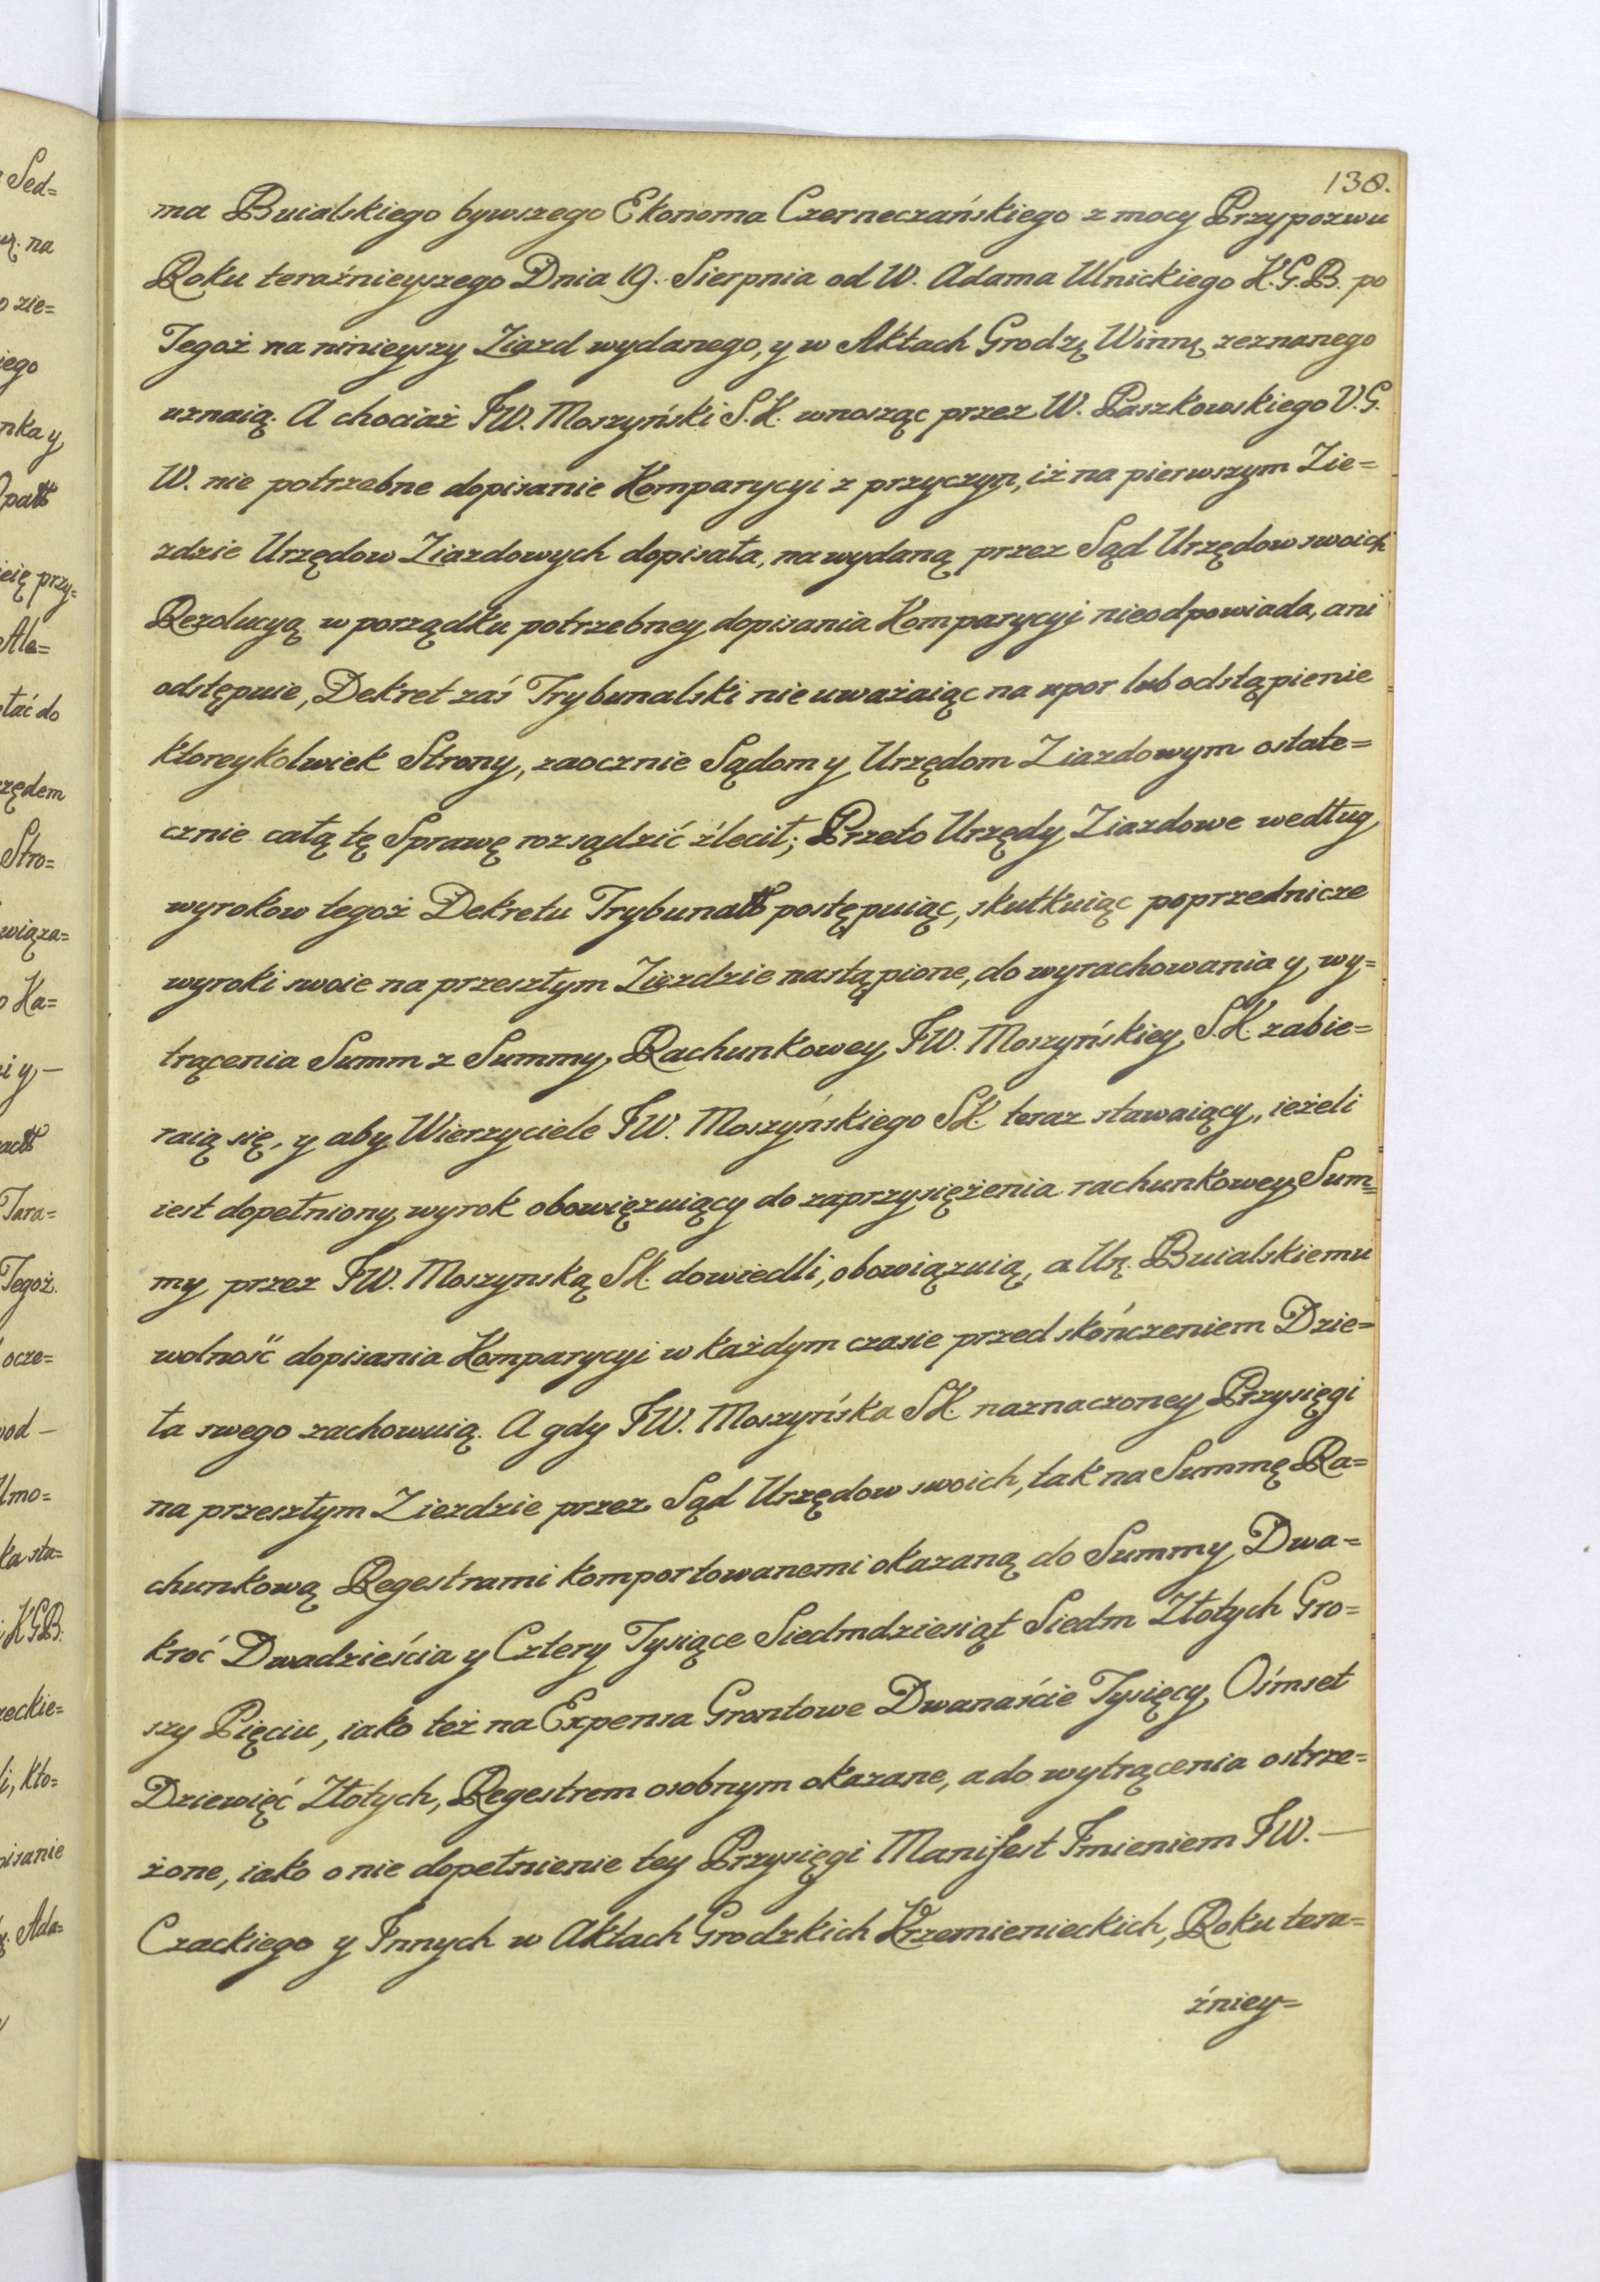 138.
ma Buialskiego bywszego Ekonoma Czerneczańskiego z mocy Przypozwu
Roku teraźnieyszego Dnia 19. Sierpnia od W. Adama Ulnickiego K.G.B. po
Tegoż na ninieyszy Ziazd wydanego, y w Aktach Grodzą Winną zeznanego
uznaią. A chociaż JW. Moszyński S.K. wnosząc przez W. Paszkowskiego V.G.
W. nie potrzebne dopisanie Komparycyi z przyczyn, iż na pierwszym Zie=
zdzie Urzędow Ziazdowych dopisała, na wydaną przez Sąd Urzędow swoich
Rezolucyą w porządku potrzebney dopisania Komparycyi nieodpowiada, ani
odstępuie, Dekret zaś Trybunalski nie uważaiąc na upor lub odstąpienie
ktoreykolwiek Strony, zaocznie Sądom y Urzędom Ziazdowym ostate=
cznie całą tę Sprawę rozsądzić źlecił; Przeto Urzędy Ziazdowe według
wyrokow tegoż Dekretu Trybunałł postępuiąc, skutkuiąc poprzednicze
wyroki swoie na przeszłym Zieździe nastąpione, do wyrachowania y wy=
trącenia Summ z Summy Rachunkowey JW. Moszyńskiey S.K. zabie=
raią się, y aby Wierzyciele JW. Moszyńskiego SK. teraz stawaiący, ieżeli
iest dopełniony wyrok obowięzuiący do zaprzysiężenia rachunkowey Sum=
my przez JW. Moszynską SK. dowiedli, obowiązuią, a Urz. Buialskiemu
wolność dopisania Komparycyi w każdym czasie przed skończeniem Dzie=
ła swego zachowuią. A gdy JW. Moszyńska SK. naznaczoney Przysięgi
na przeszłym Zieździe przez Sąd Urzędow swoich, tak na Summę Ra=
chunkową Regestrami komportowanemi okazaną do Summy Dwa=
kroć Dwadzieścia y Cztery Tysiące Siedmdziesiąt Siedm Złotych Gro=
szy Pięciu, iako też na Expensa Grontowe Dwanaście Tysięcy Ośmset
Dziewięć Złotych, Regestrem osobnym okazane, a do wytrącenia ostrze=
żone, iako o nie dopełnienie tey Przysięgi Manifest Jmieniem JW. —
Czackiego y Jnnych w Aktach Grodzkich Krzemienieckich, Roku tera=
źniey=